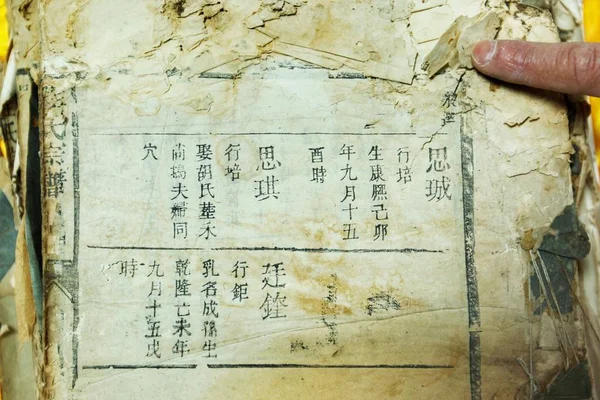 思珹
行培
生康熈己卯
年九月十五
酉時
思琪
行培
娶胡氏塟永
塢夫婦同
穴
廷銓
行鉅
乳名成孫生
乾隆乙未年
九月十五戌
時
氏宗譜